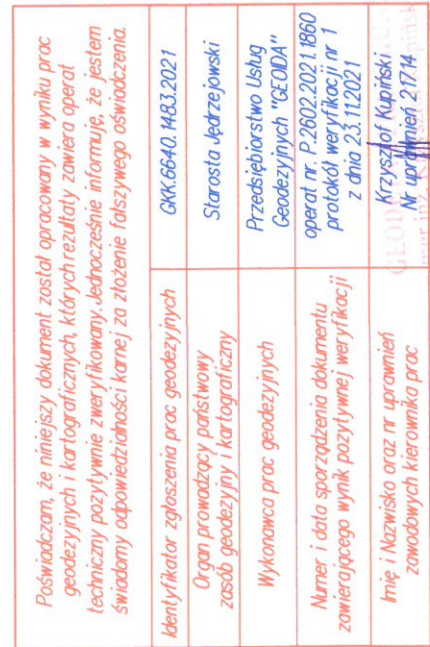 Poświadczam, że niniejszy dokument został opracowany w wyniku prac
geodezyjnych i kartograficznych, których rezultaty zawiera operat
techniczny pozytywnie zweryfikowany. Jednocześnie informuję, że jestem
świadomy odpowiedzialności karnej za złożenie fałszywego oświadczenia.
Identyfikator zgłoszenia prac geodezyjnych
GKK.6640.1483.2021
Organ prowadzący państwowy
zasób geodezyjny i kartograficzny
Starosta Jędrzejowski
Wykonawca prac geodezyjnych
Przedsiębiorstwo Usług
Geodezyjnych "GEOIDA"
Numer i data sporządzenia dokumentu
zawierającego wynik pozytywnej weryfikacji
operat nr. P.2602.2021.1860
protokół weryfikacji nr 1
z dnia 23.11.2021
Imię i Nazwisko oraz nr uprawnień
zawodowych kierownika prac
Krzysztof Kupiński
Nr uprawnień 21714